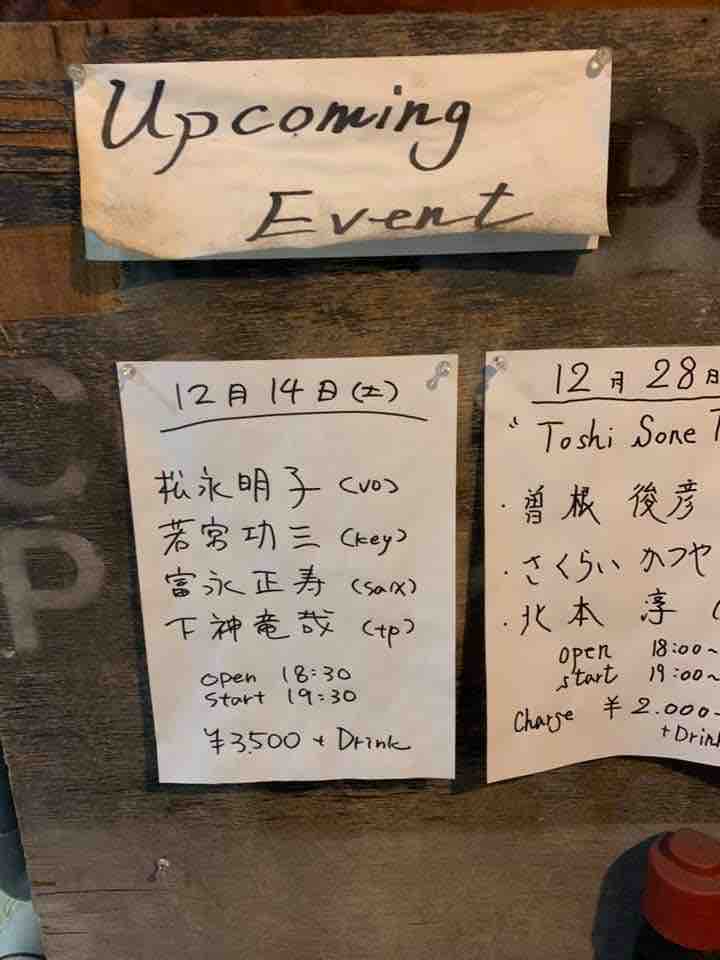 Upcoming
Event
12月14日(土)
松永明子(vo)
若宮功三(key)
富永正寿(sax)
下神竜哉(tp)
open 18:30
start 19:30
¥3,500 + Drink
12月28日
"Toshi Sone T
・曽根 俊彦
・さくらい かつや
・北本 淳(
open 18:00~
start 19:00~
Charge ¥2.000-
+Drink
C
P